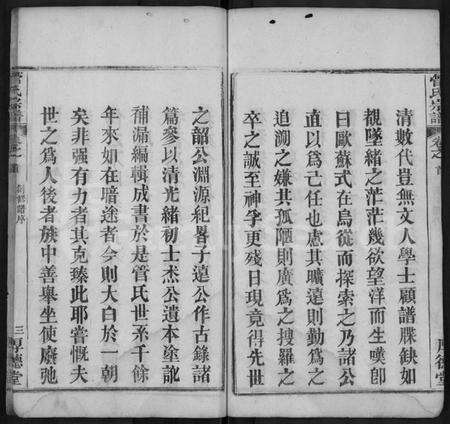 管氏宗譜
卷之首
清數代豈無文人學士顧譜牒缺如
覩墜緒之茫茫幾欲望洋而生嘆卽
曰歐蘇式在烏從而探索之乃諸公
直以爲己任也慮其曠遠則勤爲之
追溯之嫌其孤陋則廣爲之搜羅之
卒之誠至神孚更殘日現竟得先世
厚德堂
之韶公淵源紀晷子遠公作古錄諸
篇參以清光緒初士杰公遺本塗訛
補漏編輯成書於是管氏世系千餘
年來如在暗途者今則大白於一朝
矣非强有力者其克臻此耶嘗慨夫
世之爲人後者族中善舉坐使廢弛
管氏宗譜
卷之首
創修譜序
三
厚德堂